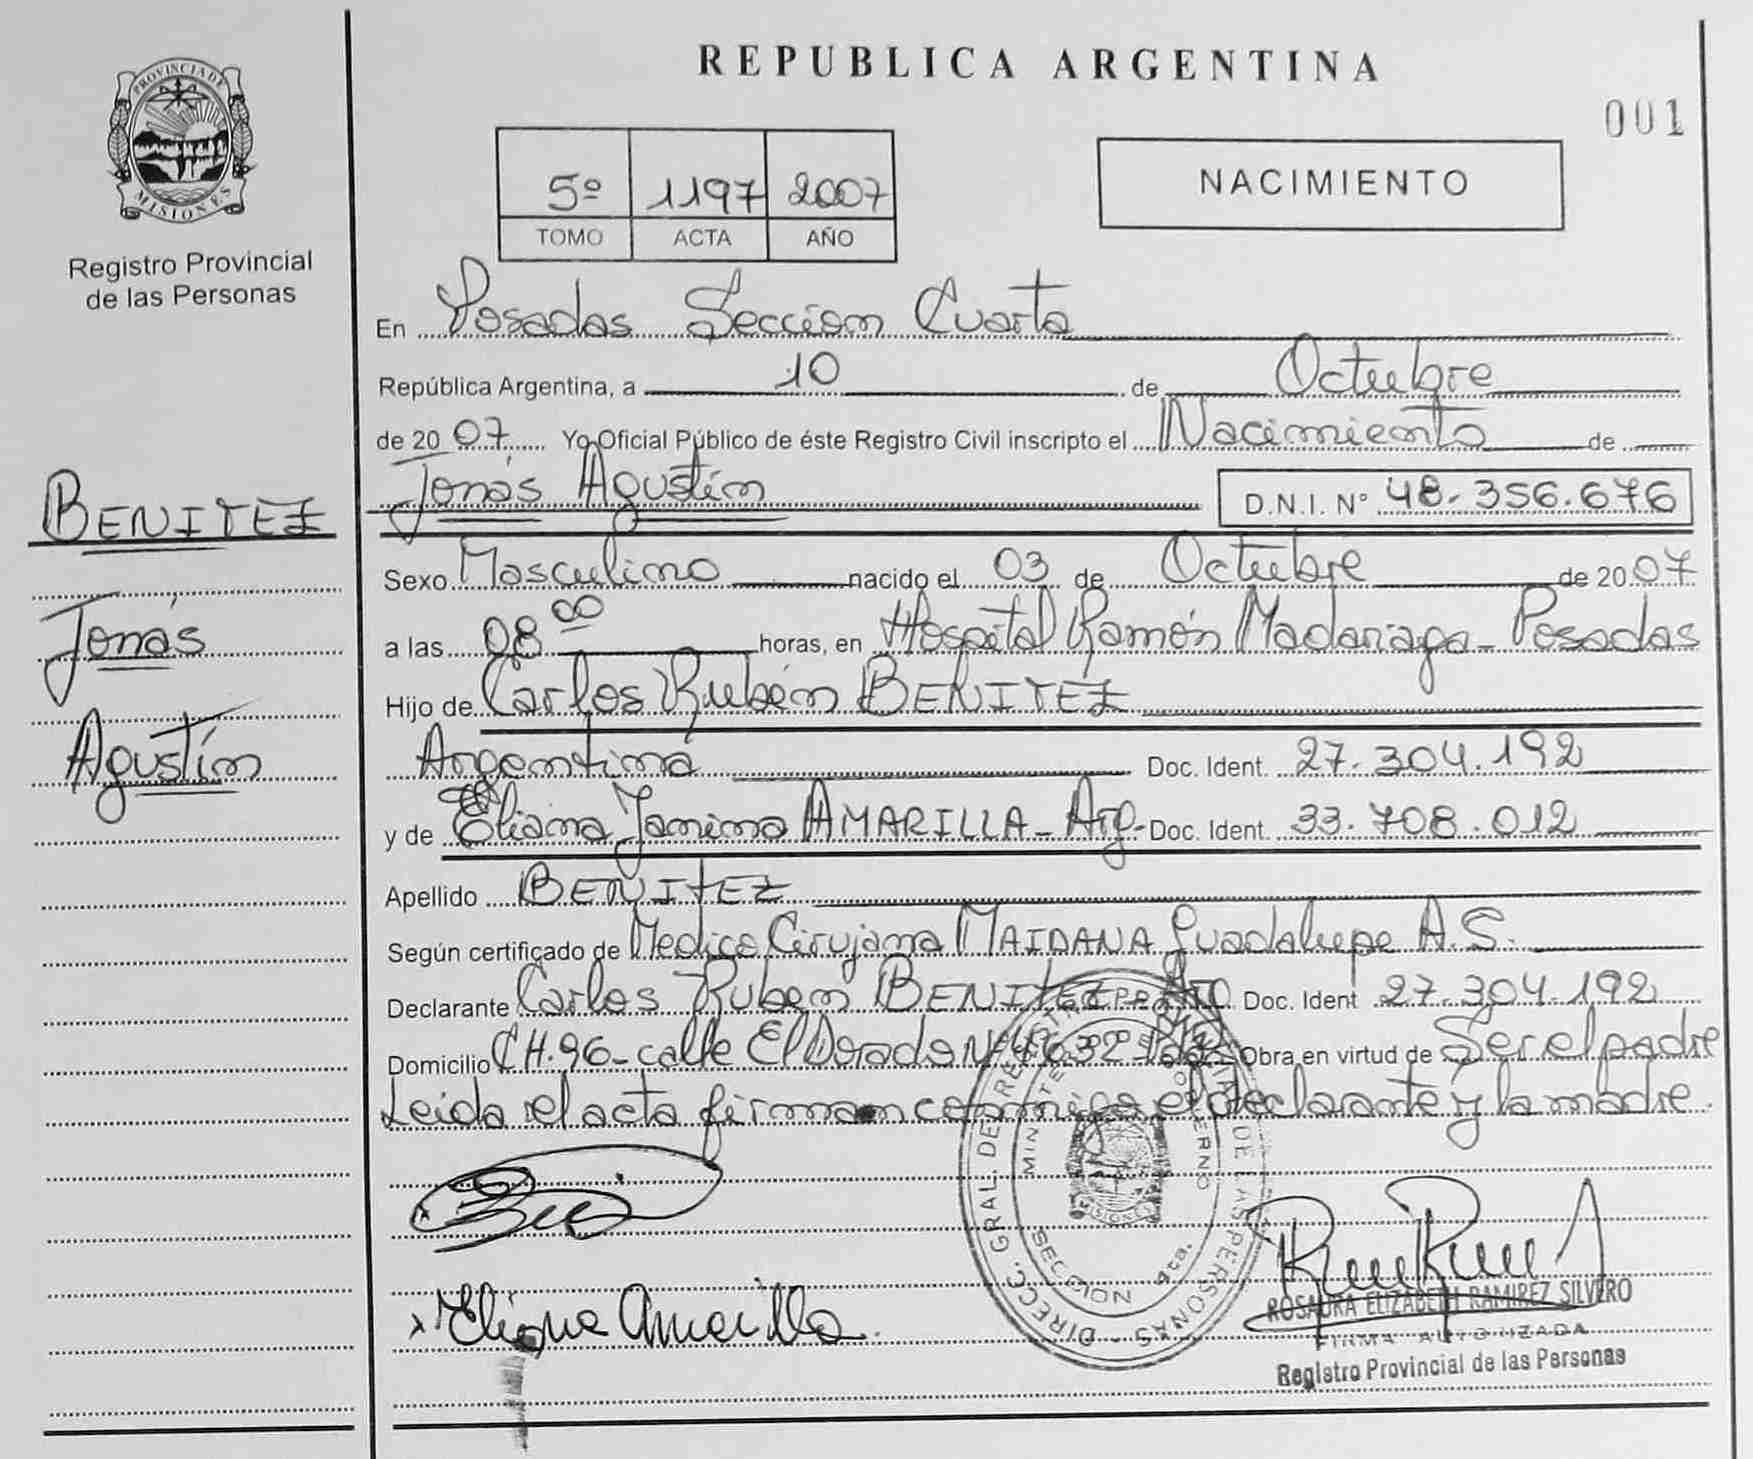 REPUBLICA ARGENTINA
001
PROVINCIA DE
MISIONES
Registro Provincial
de las Personas
5º 1197 2007
TOMO ACTA AÑO
NACIMIENTO
En Posadas Seccion Cuarta
República Argentina, a 10 de Octubre
de 2007 Yo Oficial Público de éste Registro Civil inscripto el Nacimiento de
Jonás Agustín D.N.I. Nº 48.356.676
BENITEZ
Jonás
Agustín
Sexo Masculino nacido el 03 de Octubre de 2007
a las 08 00 horas, en Hospital Ramón Madariaga - Posadas
Hijo de Carlos Rubén BENITEZ
Argentina Doc. Ident. 27.304.192
y de Eliana Yanina AMARILLA - Arg- Doc. Ident. 33.708.012
Apellido BENITEZ
Según certificado de Medica Cirujana MAIDANA Guadalupe A.S.
Declarante Carlos Ruben BENITEZ Arg Doc. Ident 27.304.192
Domicilio CH.96 - calle El Dorado Nº 4632 Obra en virtud de Ser el padre
Leida el acta firman conmigo el declarante y la madre.
x Eliana Amarilla
DIRECC. GRAL. DE REGISTRO PROVINCIAL DE LAS PERSONAS
MINISTERIO DE GOBIERNO
MISIONES
SECCION 4ta.
ROSAURA ELIZABETH RAMIREZ SILVERO
FIRMA AUTORIZADA
Registro Provincial de las Personas